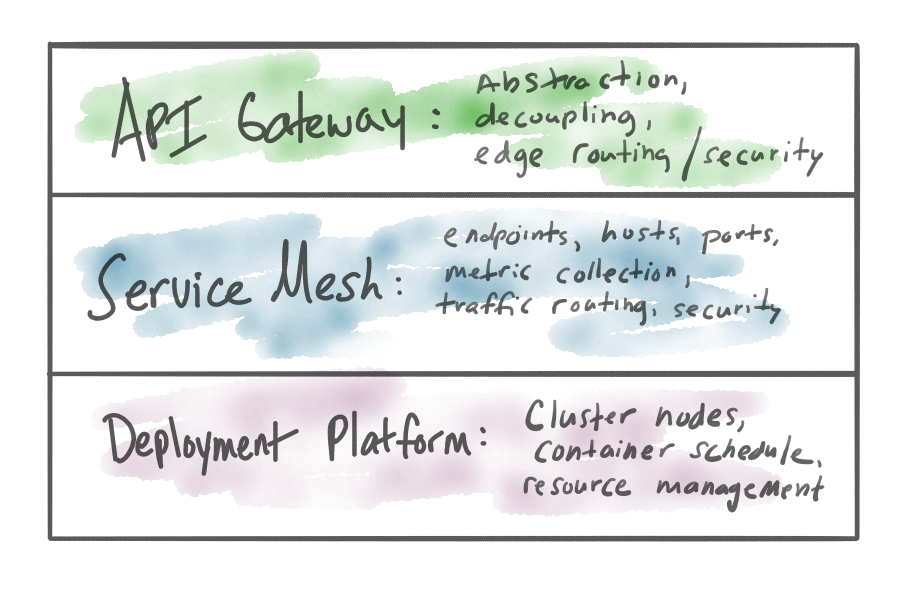 API Gateway: Abstraction,
decoupling,
edge routing/security
Service Mesh: endpoints, hosts, ports,
metric collection,
traffic routing, security
Deployment Platform: Cluster nodes,
container schedule,
resource management